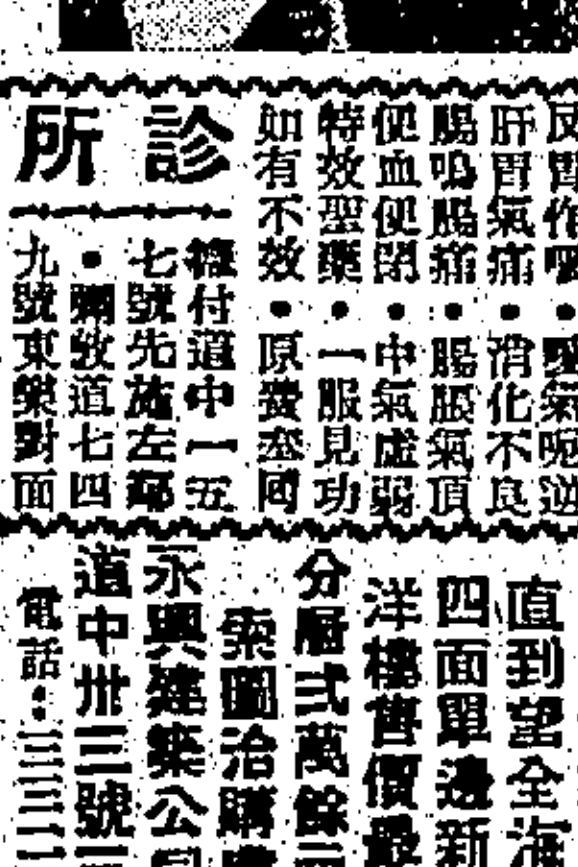 肝胃氣痛●消化不良
腸鳴腸痛●腸脹氣頂
便血便閉●中氣虛弱
特效聖藥●一服見功
如有不效●原費奉回
診所
德付道中一五
七號先施左鄰
●彌敦道七四
九號東樂對面
直到望全海
四面單邊新
洋樓售價最
分層弍萬餘元
索圖治購
永興建築公司
道中卅三號
電話：三三二一